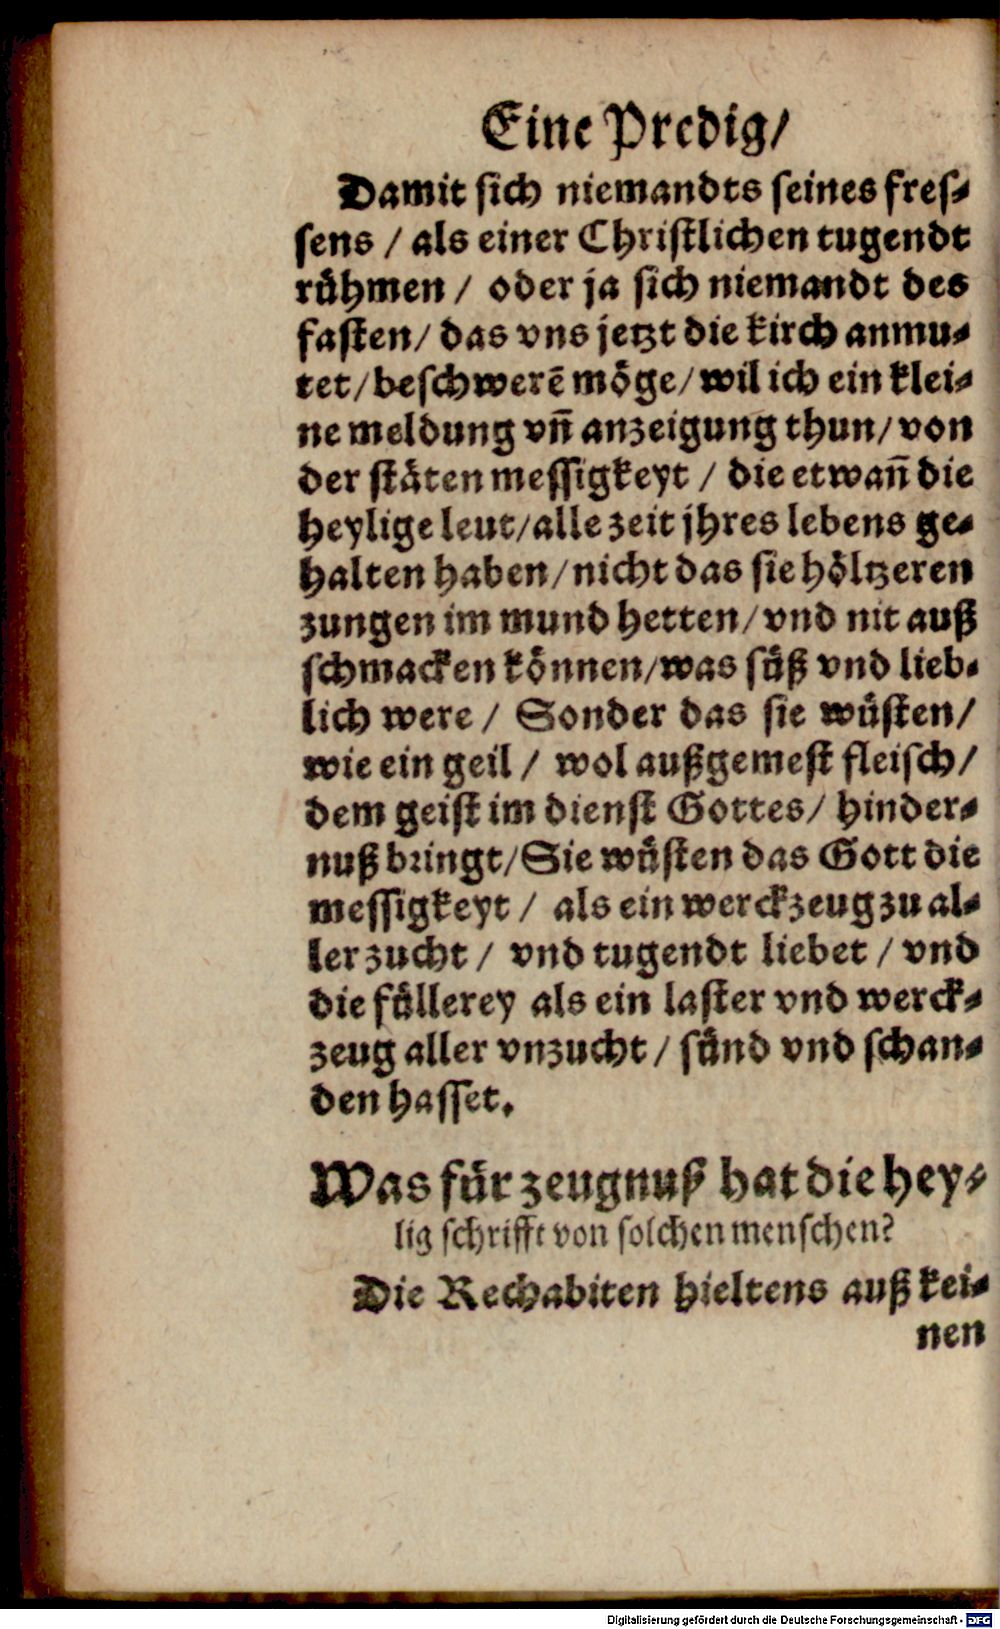 Eine Predig/
Damit sich niemandts seines fres⸗
sens / als einer Christlichen tugendt
rühmen / oder ja sich niemandt des
fasten/ das vns jetzt die kirch anmu⸗
tet/ beschwerē möge/ wil ich ein klei⸗
ne meldung vñ anzeigung thun/ von
der stäten messigkeyt / die etwañ die
heylige leut/ alle zeit jhres lebens ge⸗
halten haben/ nicht das sie höltzeren
zungen im mund hetten/ vnd nit auß
schmacken können/ was süß vnd lieb⸗
lich were / Sonder das sie wüsten/
wie ein geil / wol außgemest fleisch/
dem geist im dienst Gottes/ hinder⸗
nuß bringt/ Sie wüsten das Gott die
messigkeyt / als ein werckzeug zu al⸗
ler zucht / vnd tugendt liebet / vnd
die füllerey als ein laster vnd werck⸗
zeug aller vnzucht / sünd vnd schan⸗
den hasset.
Was für zeugnuß hat die hey⸗
lig schrifft von solchen menschen?
Die Rechabiten hieltens auß kei⸗
nen
Digitalisierung gefördert durch die Deutsche Forschungsgemeinschaft - DFG